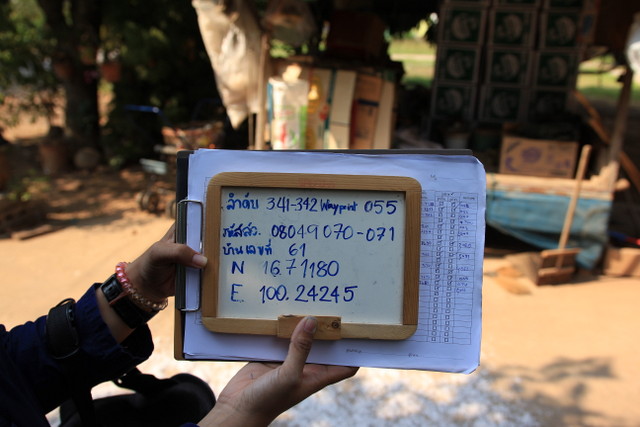 ลำดับ 341-342 Waypoint 055
รหัสสว. 08049070-071
บ้านเลขที่ 61
N 16.71180
E 100.24245